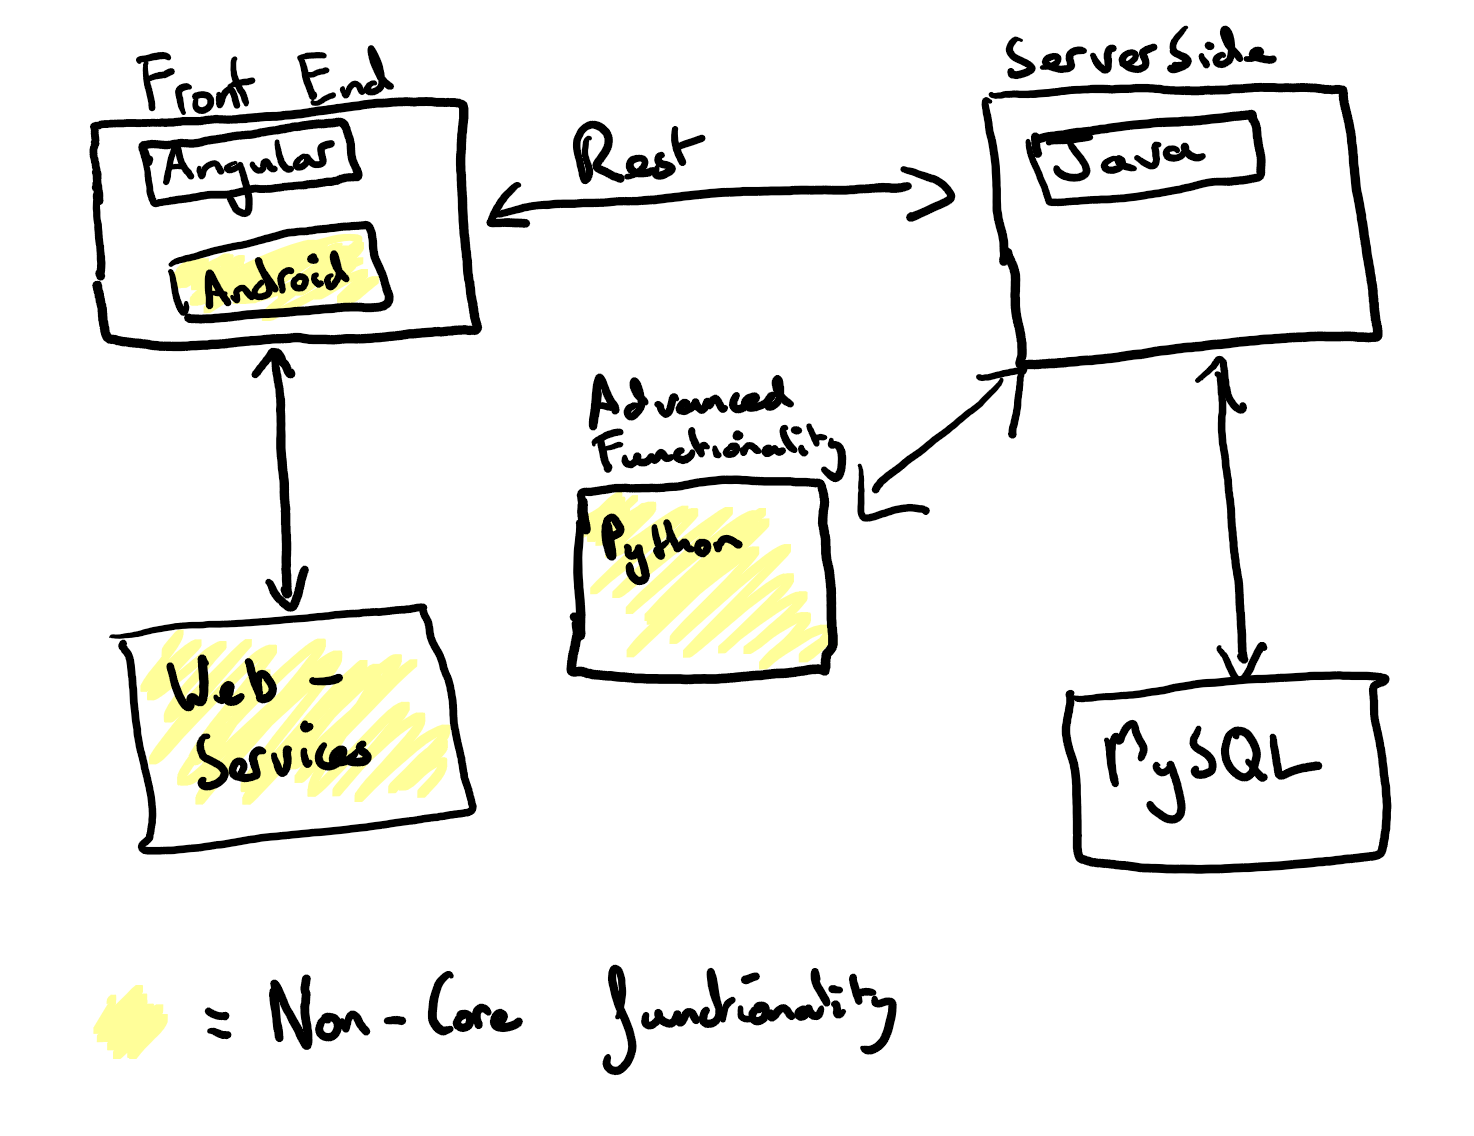 Front End
Angular
Android
Rest
ServerSide
Java
Advanced
Functionality
Python
Web-
Services
MySQL
= Non-Core functionality